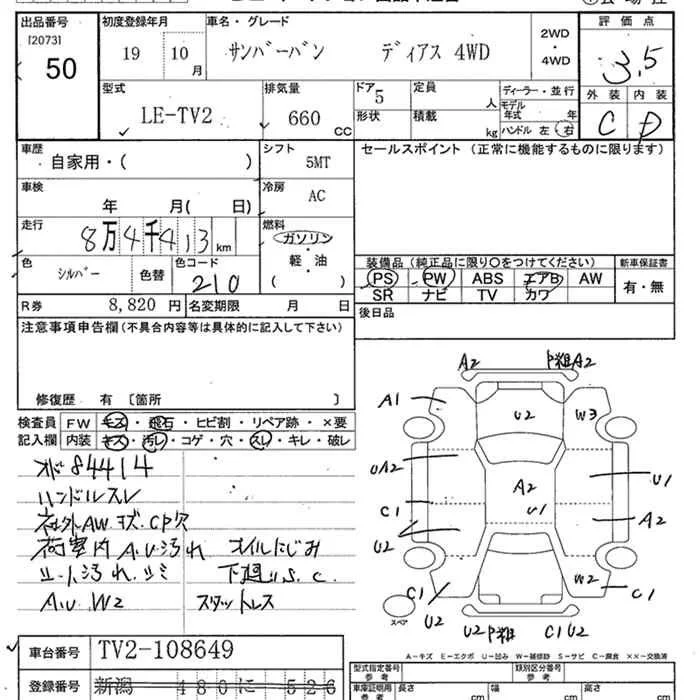 出品番号 初度登録年月 車名・グレード 2WD・4WD 評価点
[2073] 50 19 10月 サンバーバン ディアス 4WD 3.5
型式 排気量 ドア 定員 ディーラー・並行 外装 内装
LE-TV2 660cc 5 人 モデル年式 年 C D
形状 積載 kg ハンドル 左・右
車歴 シフト セールスポイント(正常に機能するものに限ります)
自家用・( ) 5MT
車検 冷房
年 月( 日) AC
走行 燃料
8万4千413km ガソリン
軽・油
( )
色 色替 色コード 装備品(純正品に限り○をつけてください) 新車保証書
シルバー 210 PS PW ABS エアB AW 有・無
SR ナビ TV カワ
R券 8,820円 名変期限 月 日 後日品
注意事項申告欄(不具合内容等は具体的に記入して下さい)
修復歴 有 〔箇所 〕
検査員 FW キズ・飛石・ヒビ割・リペア跡・×要
記入欄 内装 キズ・汚レ・コゲ・穴・スレ・キレ・破レ
オド84414
ハンドルスレ
社外AWキズ・CP欠
荷室内 A.U汚れ オイルにじみ
シート汚れ.シミ 下廻りS.C.
A.U W2 スタットレス
A2 P粗A2
A1 U2 W3
UA2 A2 U1
C1 U1 A2
U2
C1 W2 C1
スペア U2 U2P粗 C1U2
A-キズ E-エクボ U-凹み W-補修跡 S-サビ C-腐食 ××-交換済
車台番号 TV2-108649
登録番号 新潟 480 に 526
型式指定番号 参考 類別区分番号 参考
車庫証明用 参考 長さ cm 幅 cm 高さ cm